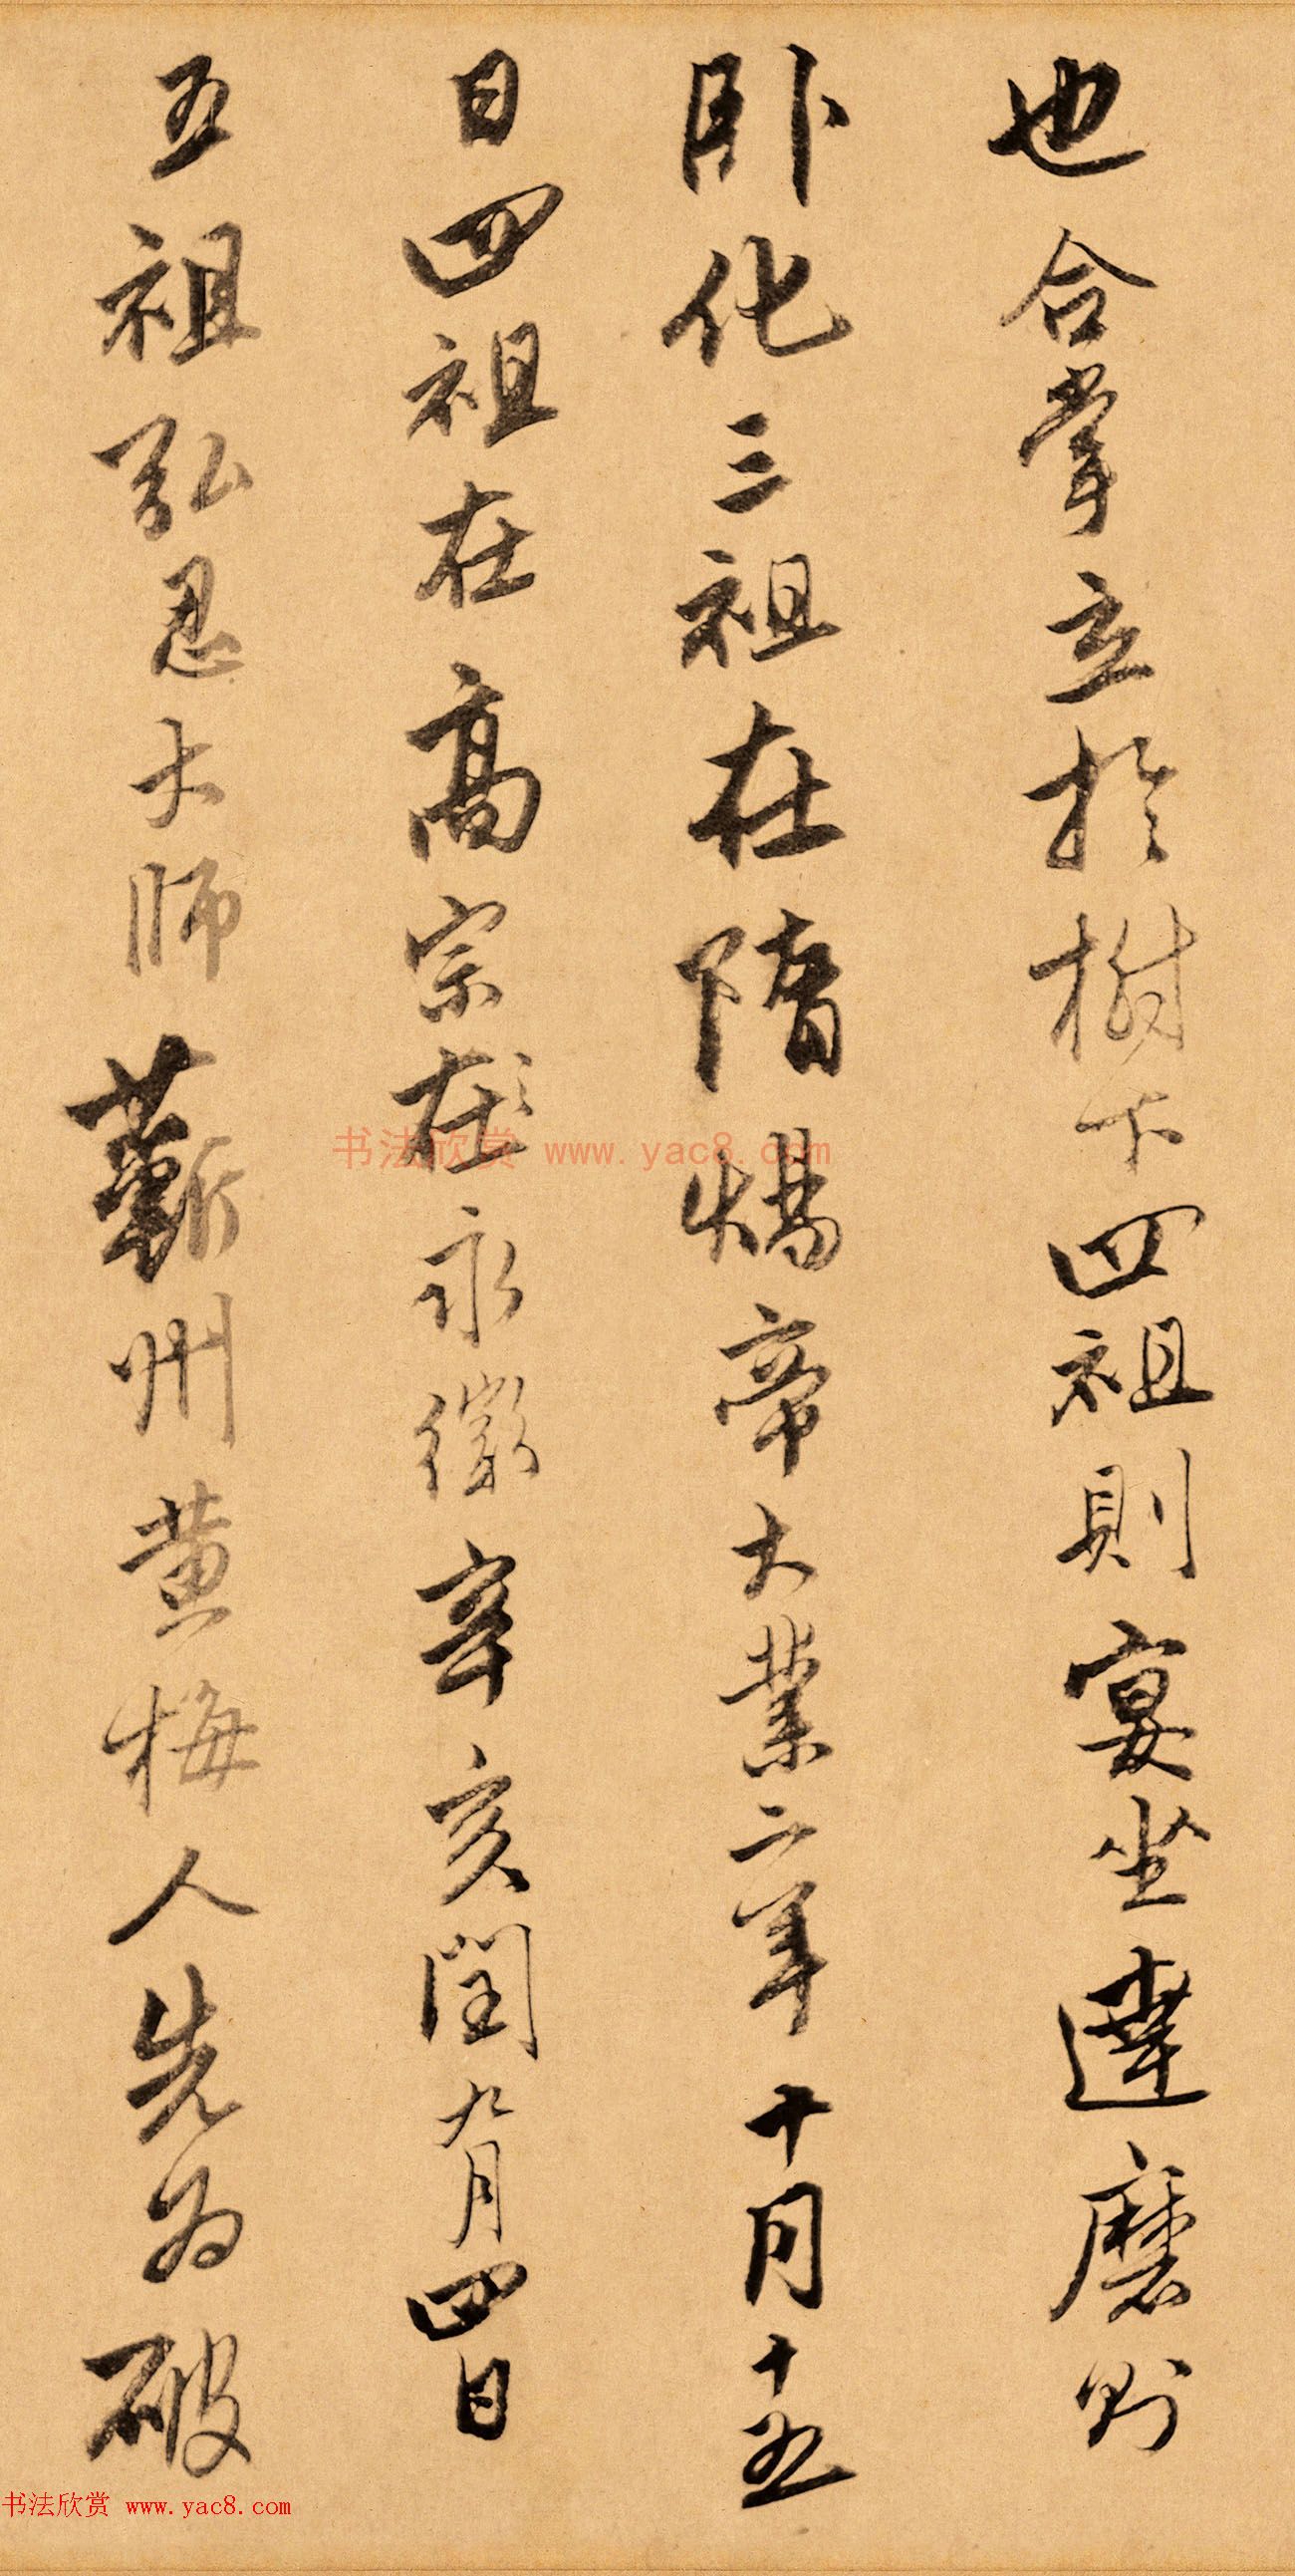 也合掌立於樹下四祖則宴坐達磨則
卧化三祖在隋煬帝大業二年十月十五
日四祖在高宗在永徽辛亥閏九月四日
五祖弘忍大師蘄州黃梅人先為破
书法欣赏 www.yac8.com
书法欣赏 www.yac8.com